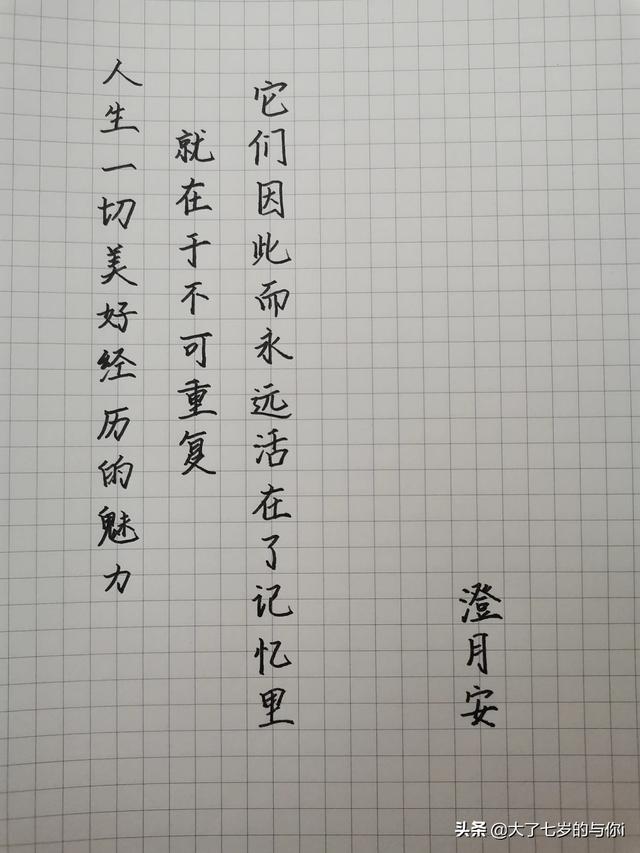 人生一切美好经历的魅力
就在于不可重复
它们因此而永远活在了记忆里
澄月安
头条 @大了七岁的与你i